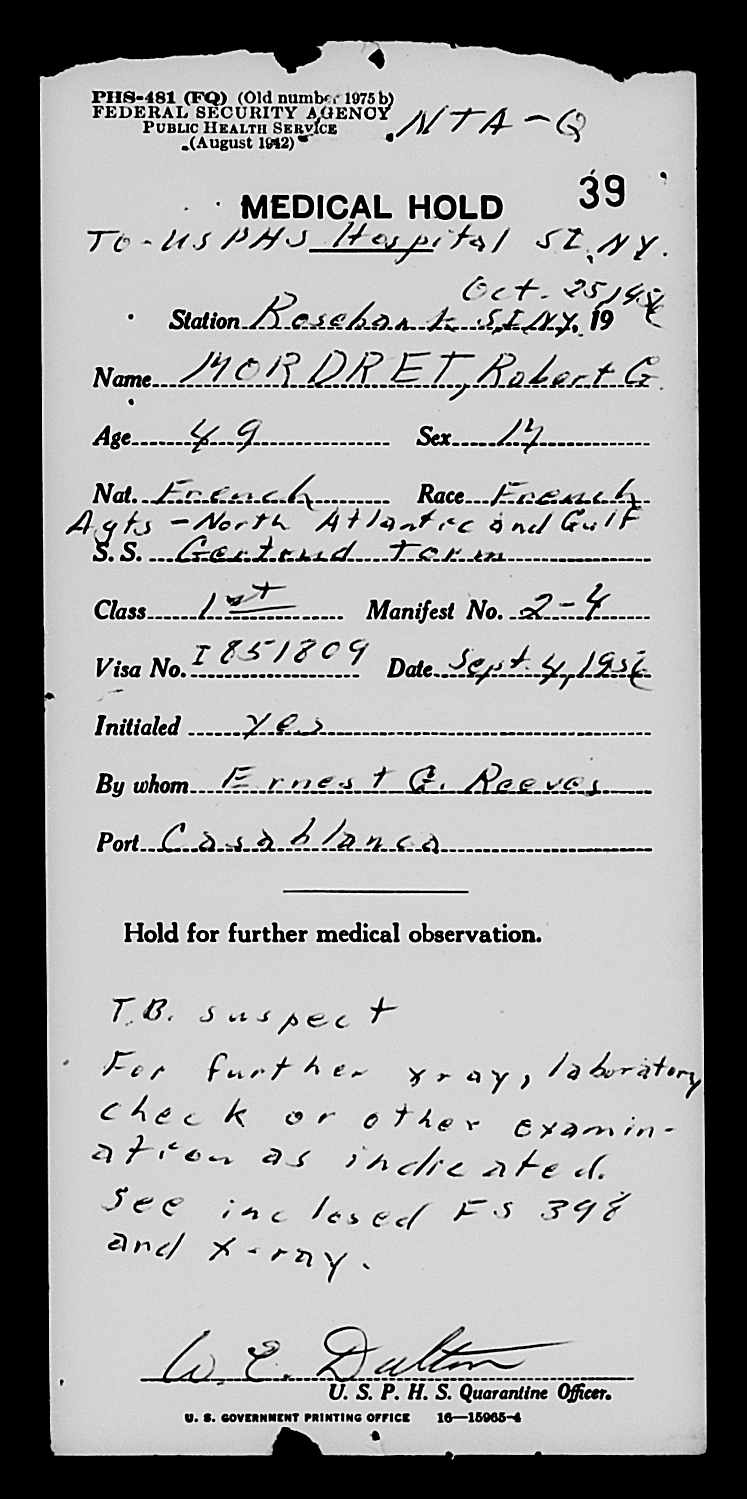 PHS-481 (FQ) (Old number 1975 b)
FEDERAL SECURITY AGENCY
PUBLIC HEALTH SERVICE
(August 1942)
NTA-Q
39
MEDICAL HOLD
To - US PHS Hospital SI, NY.
Oct. 25, 1956
Station Rosebank S.I. N.Y. 19
Name MORDRET, Robert G.
Age 49 Sex M
Nat. French Race French
Agts - North Atlantic and Gulf
S. S. Gertrud Torm
Class 1st Manifest No. 2-4
Visa No. I 851809 Date Sept. 4, 1956
Initialed yes
By whom Ernest G. Reeves
Port Casablanca
Hold for further medical observation.
T.B. suspect
For further xray, laboratory
check or other examin-
ation as indicated.
See inclosed FS 398
and x-ray.
W. E. Dalton
U. S. P. H. S. Quarantine Officer.
U. S. GOVERNMENT PRINTING OFFICE 16—15965-4